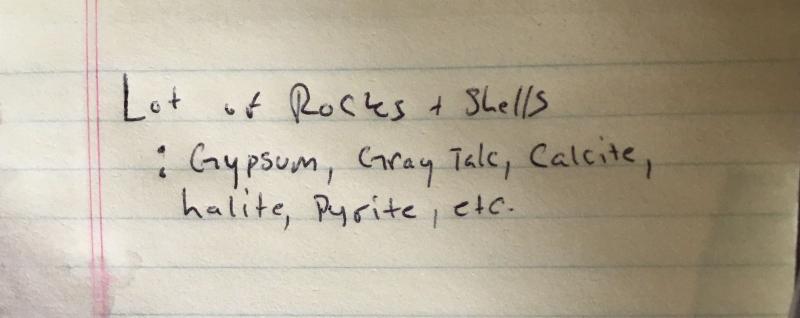 Lot of Rocks + Shells
: Gypsum, Gray Talc, Calcite,
halite, Pyrite, etc.